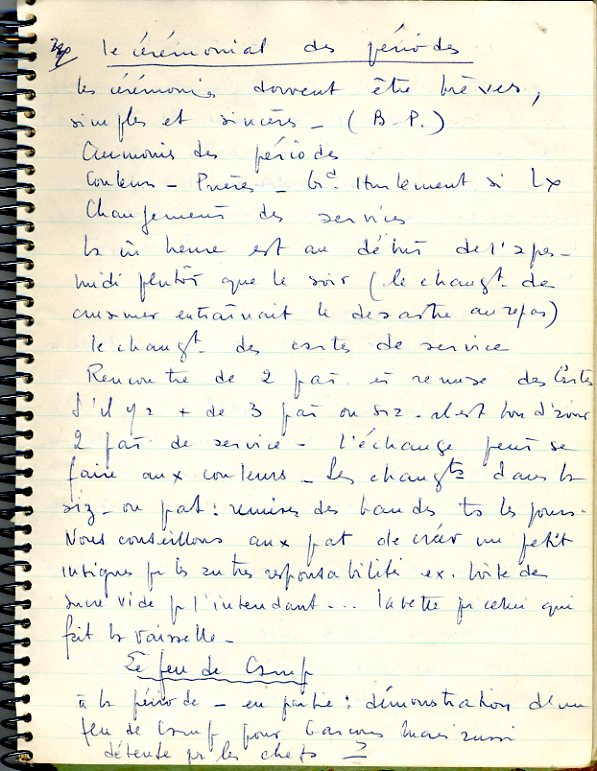 le cérémonial des périodes
les cérémonies doivent être brèves,
simples et sincères - (B-P.)
Cérémonies des périodes
Couleurs - Prières - Gd Hurlement si Lx
Changement des services
la m heure est au début de l'apès-
midi plutôt que le soir (le changt de
cuisinier entraînait le désastre au repas)
le changt des cartes de service
Rencontre de 2 pat. et remise des Cartes
S'il y a + de 3 pat ou siz - il est bon d'avoir
2 pat. de service - l'échange peut se
faire aux couleurs - Les changts dans la
siz - ou pat : remises des bandes ts les jours -
Nous conseillons aux pat de créer un petit
insignes pr les autres responsabilités ex. boîte de
sucre vide pr l'intendant ... lavette pr celui qui
fait la vaisselle -
Le feu de Camp
à la période - en partie : démonstration d'un
feu de Camp pour Garçons mais aussi
détente pr les chefs -